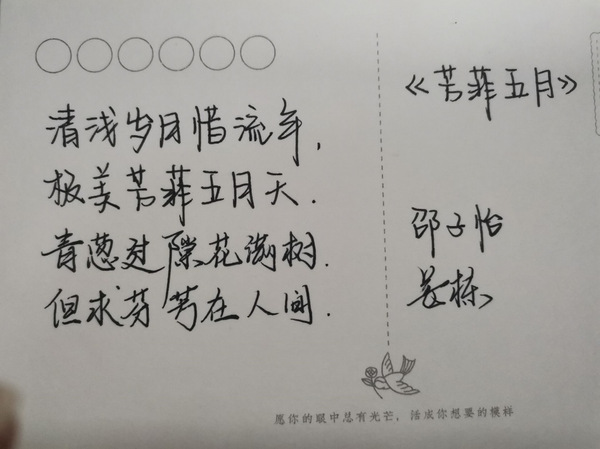 清浅岁月惜流年,
极美芳菲五月天.
青葱过隙花满树.
但求芬芳在人间.
《芳菲五月》
邵子怡
愿你的眼中总有光芒，活成你想要的模样